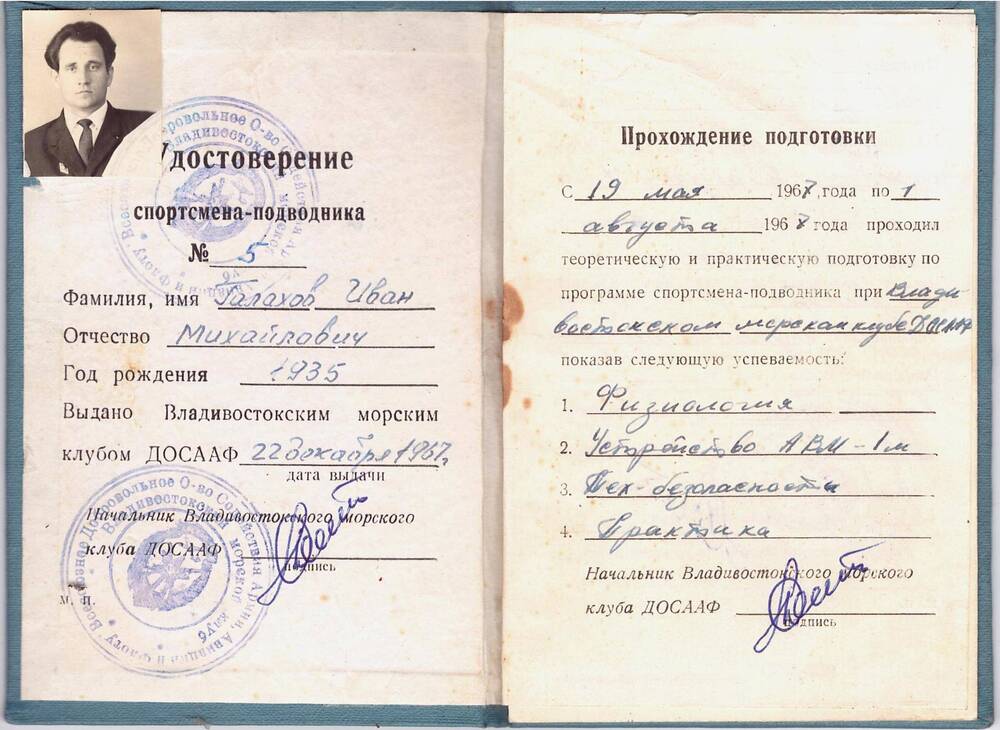 Удостоверение
спортсмена-подводника
№ 5
Фамилия, имя Галахов Иван
Отчество Михайлович
Год рождения 1935
Выдано Владивостокским морским
клубом ДОСААФ 22 декабря 1967г.
дата выдачи
Начальник Владивостокского морского
клуба ДОСААФ
подпись
М. П.
Всесоюзное Добровольное О-во Содействия Армии, Авиации и Флоту
Владивостокский морской клуб
Прохождение подготовки
С 19 мая 1967 года по 1
августа 1967 года проходил
теоретическую и практическую подготовку по
программе спортсмена-подводника при Влади
востокском морском клубе ДОСААФ
показав следующую успеваемость:
1. Физиология
2. Устройство АВМ-1м
3. Тех-безопасности
4. Практика
Начальник Владивостокского морского
клуба ДОСААФ
подпись